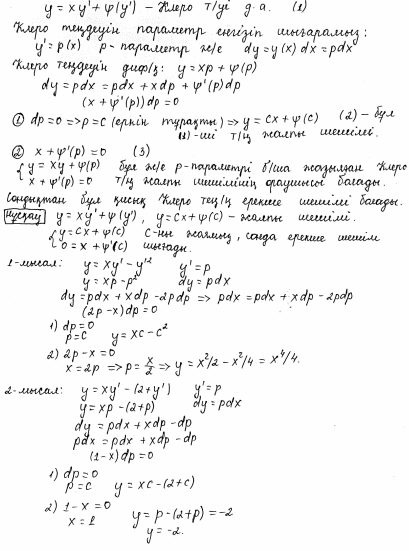 y = xy' + φ(y') – Клеро т/уі д.а. (1)
Клеро теңдеуін параметр енгізіп шығарамыз:
y' = p(x) p - параметр ж/е dy = y(x) dx = pdx
Клеро теңдеуін диф/қ: y = xp + φ(p)
dy = pdx = pdx + xdp + φ'(p) dp
(x + φ'(p)) dp = 0
① dp = 0 => p = C (еркін тұрақты) => y = Cx + φ(C) (2) – бұл
(1)-ші т/ң жалпы шешімі.
② x + φ'(p) = 0 (3)
{ y = xy + φ(p) бұл ж/е p-параметрі б/ша жазылған Клеро
x + φ'(p) = 0 т/ң жалпы шешімінің болады.
Сондықтан бұл қисық Клеро тең/ң ерекше шешімі болады.
Нұсқау y = xy' + φ(y'), y = Cx + φ(C) – жалпы шешімі.
{ y = Cx + φ(C) C-ны жоямыз, сонда ерекше шешім
0 = x + φ'(C) шығады.
1-мысал: y = xy' – y'² y' = p
y = xp – p² dy = pdx
dy = pdx + xdp – 2pdp => pdx = pdx + xdp – 2pdp
(2p – x) dp = 0
1) dp = 0
p = C y = xc – c²
2) 2p – x = 0
x = 2p => p = x/2 => y = x²/2 – x²/4 = x²/4.
2-мысал: y = xy' – (2 + y') y' = p
y = xp – (2 + p) dy = pdx
dy = pdx + xdp – dp
pdx = pdx + xdp – dp
(1 – x) dp = 0
1) dp = 0
p = C y = xc – (2 + c)
2) 1 – x = 0 y = p – (2 + p) = –2
x = 1 y = –2.